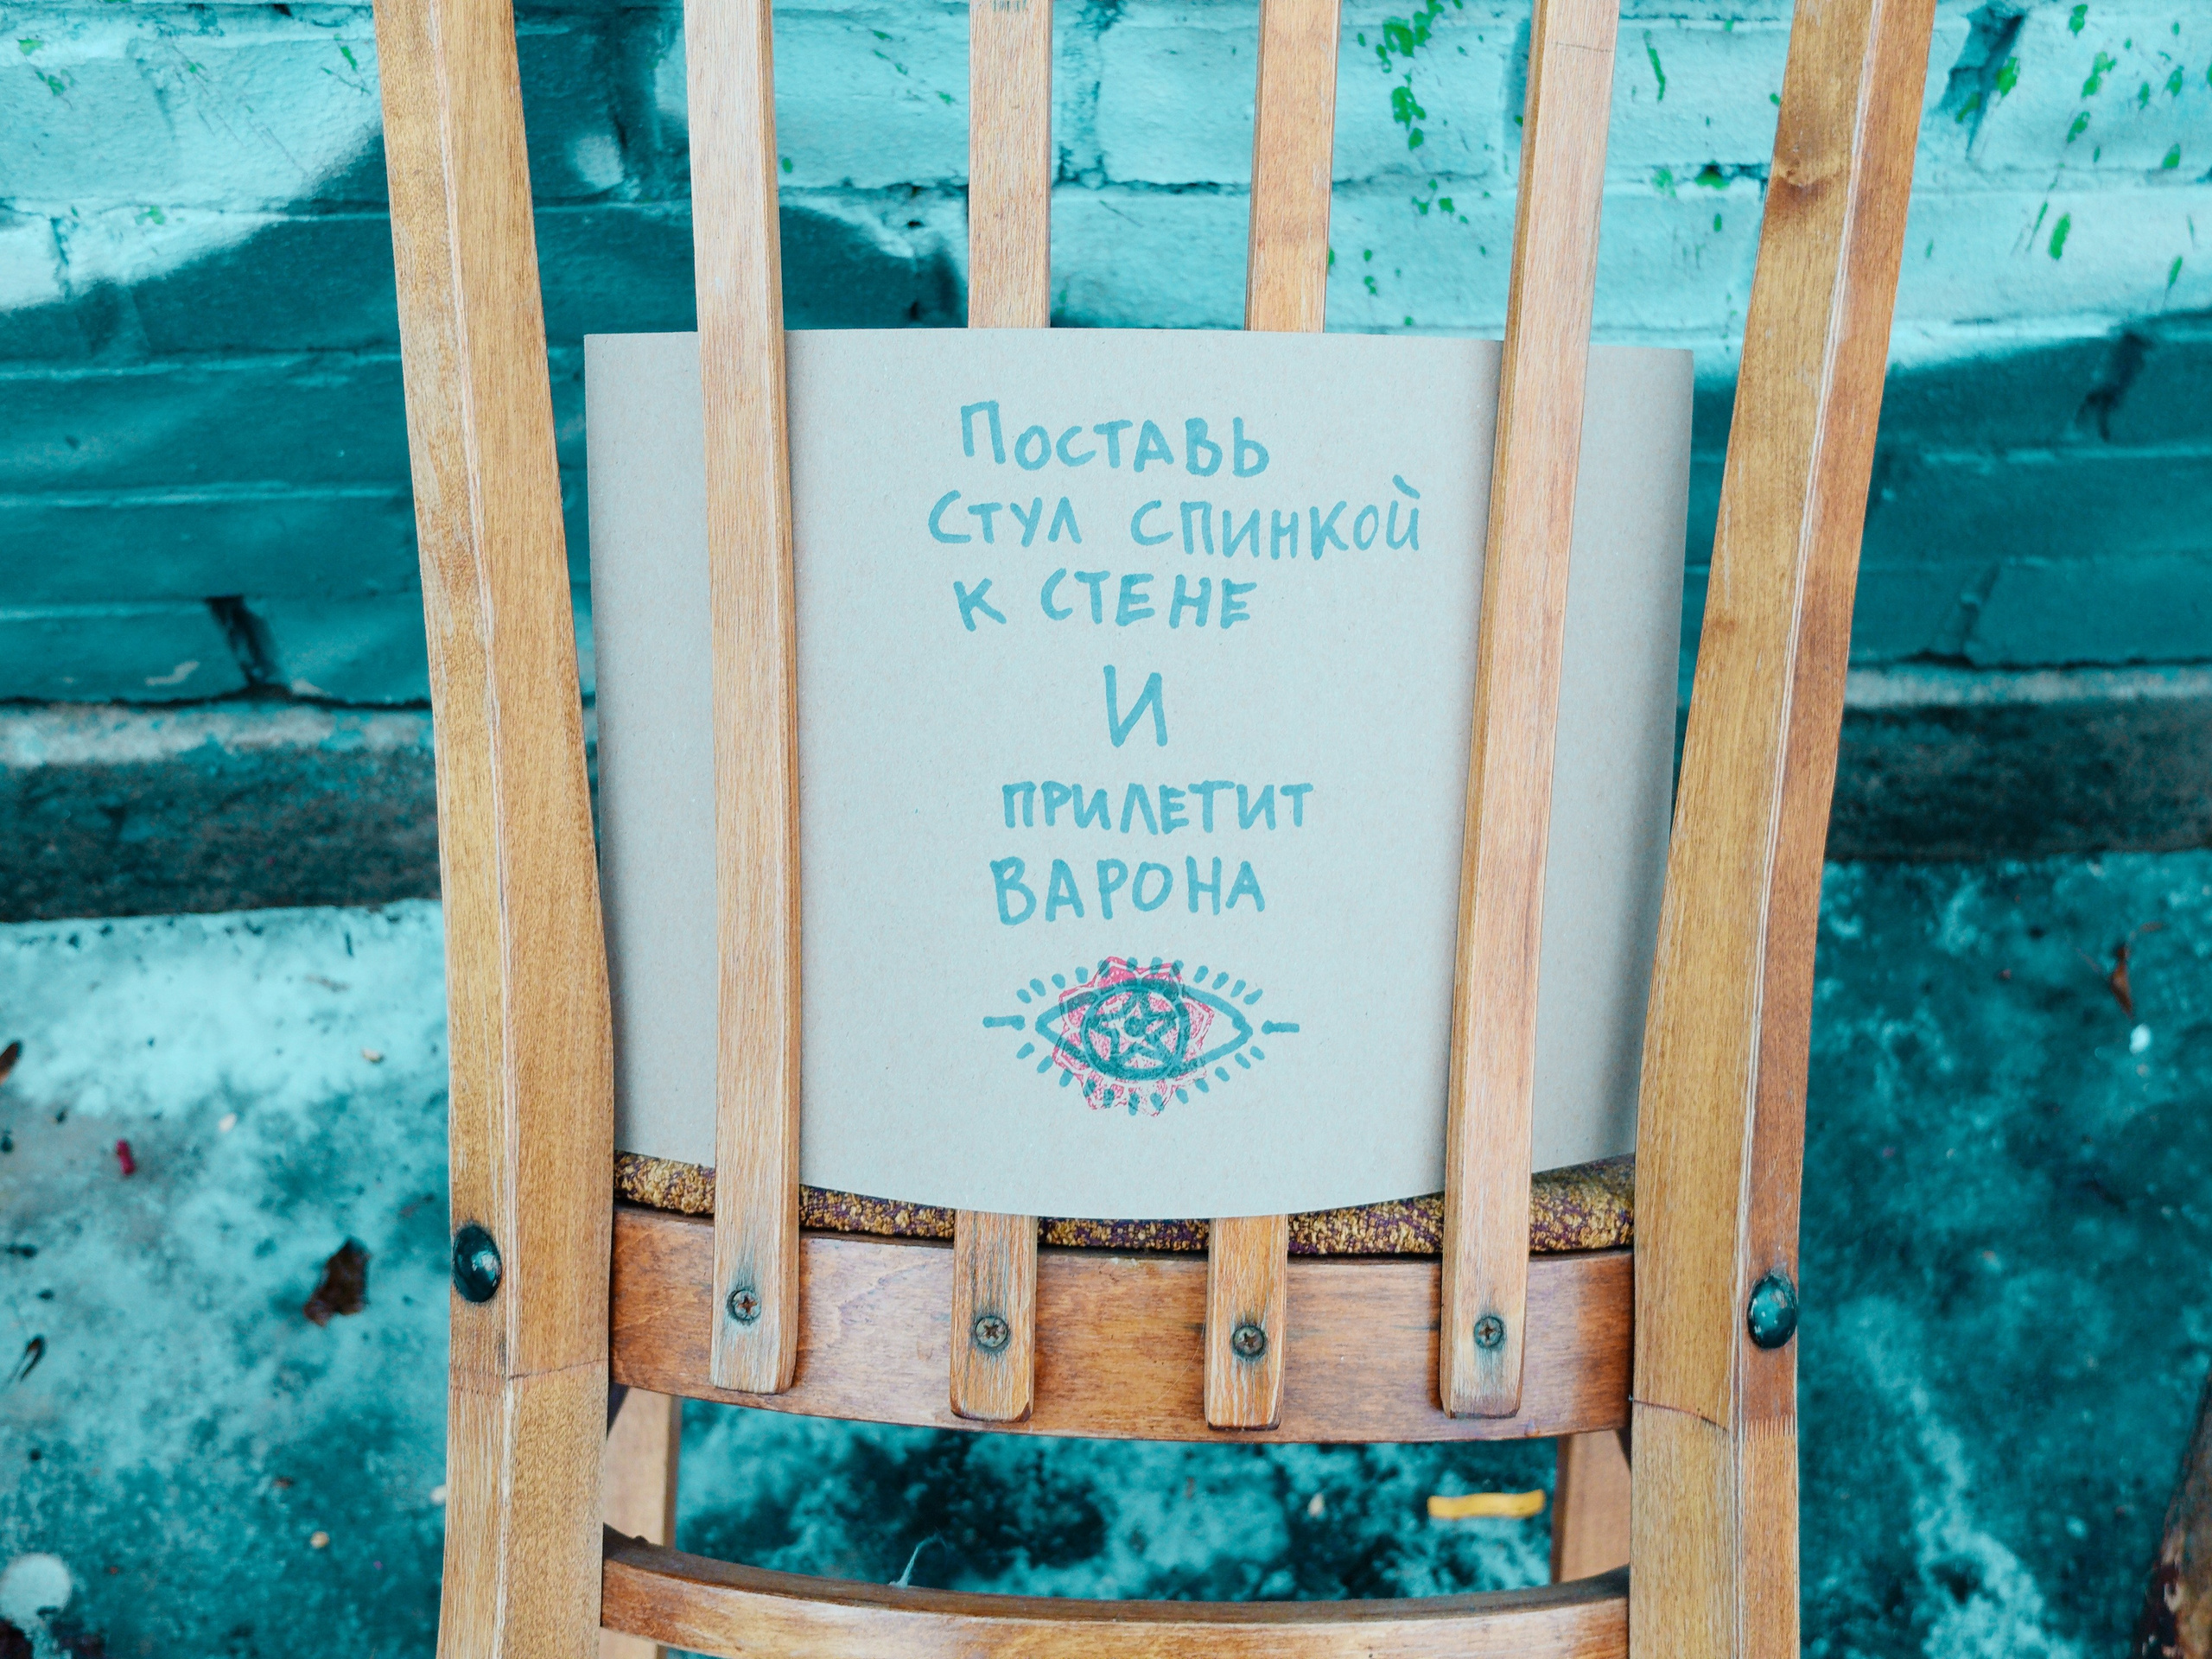 Поставь
стул спинкой
к стене
и
прилетит
варона